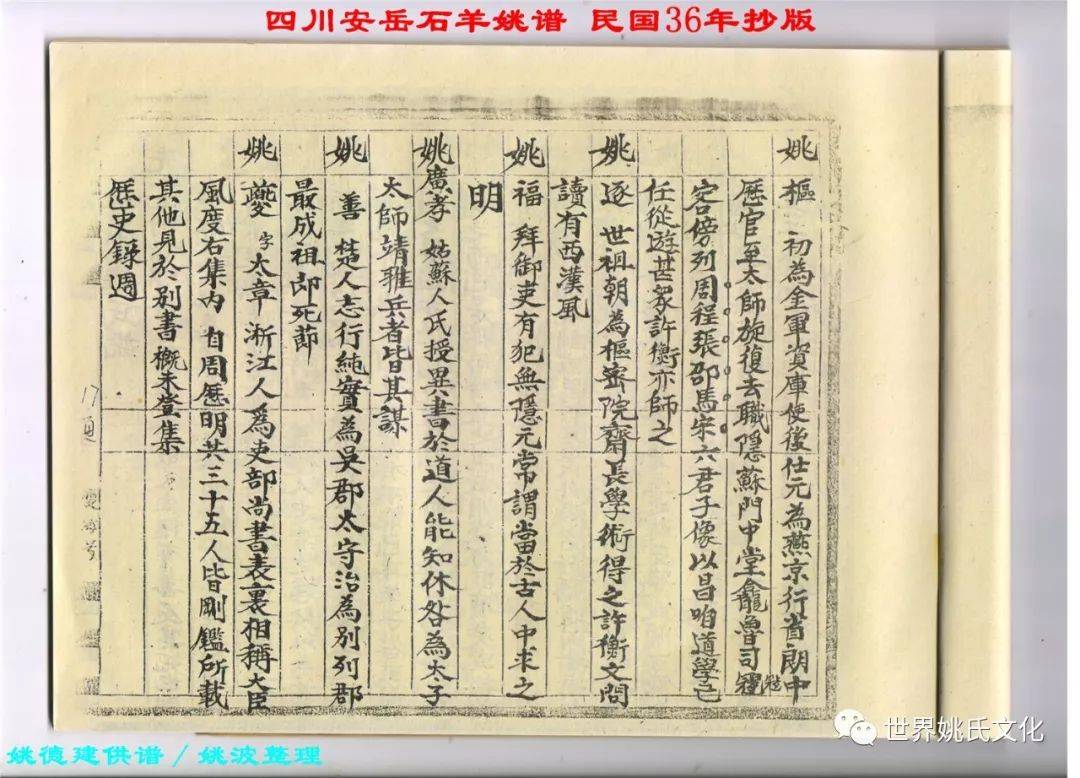 四川安岳石羊姚谱 民国36年抄版
姚樞 初為金軍資庫使後仕元為燕京行省朗中
歷官至太師旋復去職隱蘇門中堂龕魯司寇
容傍列周程張邵馬宋六君子像以昌咱道學己
任從遊甚衆許衡亦師之
姚逐 世祖朝為樞密院齋長學術得之許衡文問
讀有西漢風
姚福 拜御吏有犯無隱元常謂當於古人中求之
明
姚廣孝 姑蘇人氏授異書於道人能知休咎為太子
太師靖雅兵者皆其謀
姚善 楚人志行純實為吳郡太守治為別列郡
最成祖即死節
姚夔 字太章淅江人爲吏部尚書表裏相稱大臣
風度右集內自周歷明共三十五人皆剛鑑所載
其他見於別書概未登集
歷史錄週
17
世界姚氏文化
姚德建供谱/姚波整理